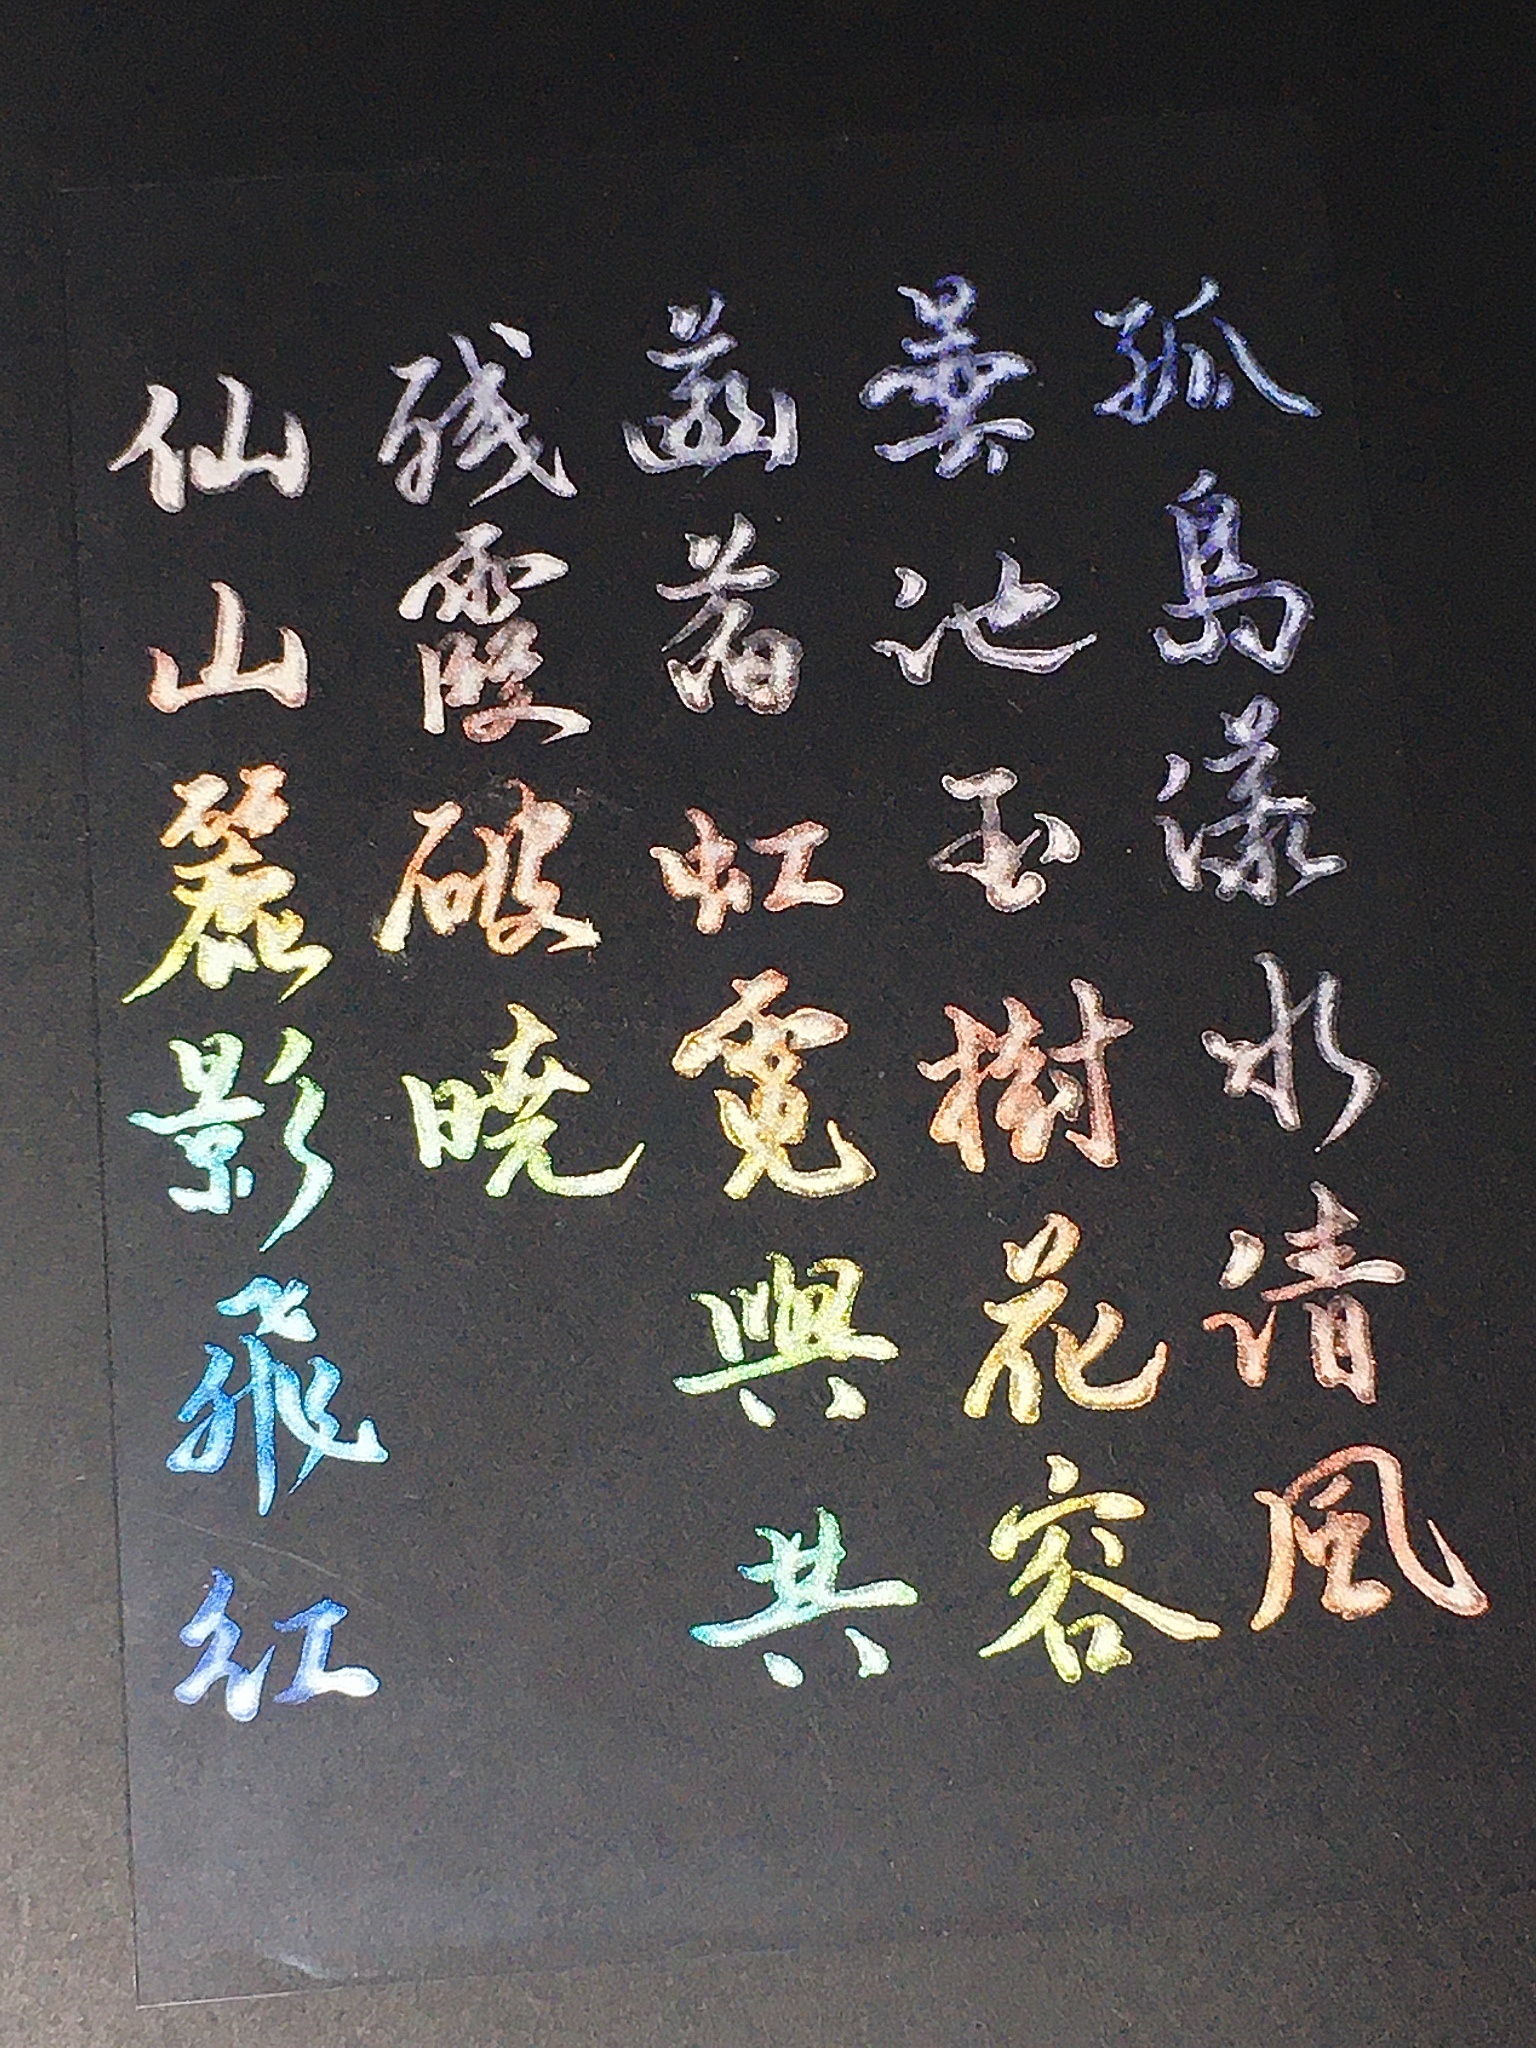 孤島漾水清風
曇池玉樹花容
菡萏虹霓與共
残霞破暁
仙山麗影飛紅